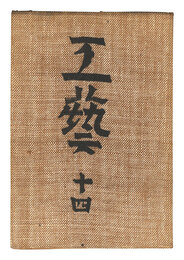 工藝
十四